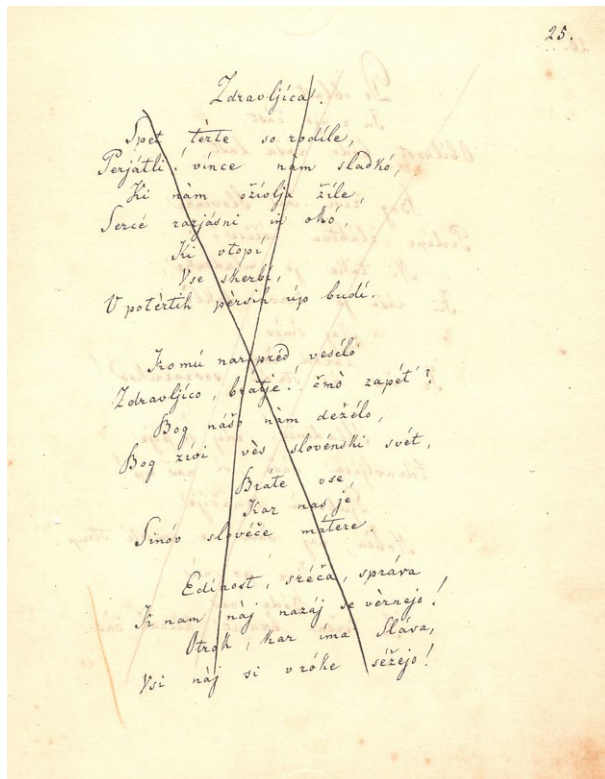 25.
Zdravljíca.
Spet tèrte so rodíle,
Perjátli! vínce nàm sladkó,
Ki nàm ožívlja žíle,
Sercé razjásni in okó,
Ki vtopí
Vse skerbí,
V potèrtih pèrsih úp budí.
Komú narpréd vesélo
Zdravljíco, bratje! čmò zapét'?
Bog nášo nàm deželo,
Bog žívi vès slovénski svét,
Bráte vse,
Kar nas je
Sinóv slovéče mátere.
Edinost, sréča, správa
K nam nàj nazáj se vèrnejo!
Otrok, kar ima Sláva,
Vsi nàj si v róke séžejo!